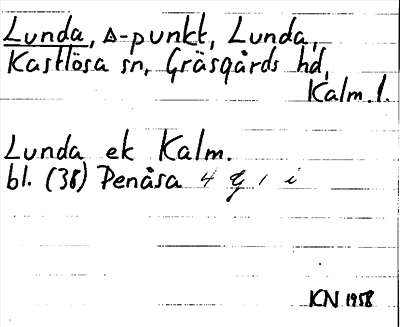 Lunda, △-punkt, Lunda,
Kastlösa sn, Gräsgårds hd,
Kalm. l.
Lunda ek Kalm.
bl. (38) Penåsa 4 g 1 i
KN 1958